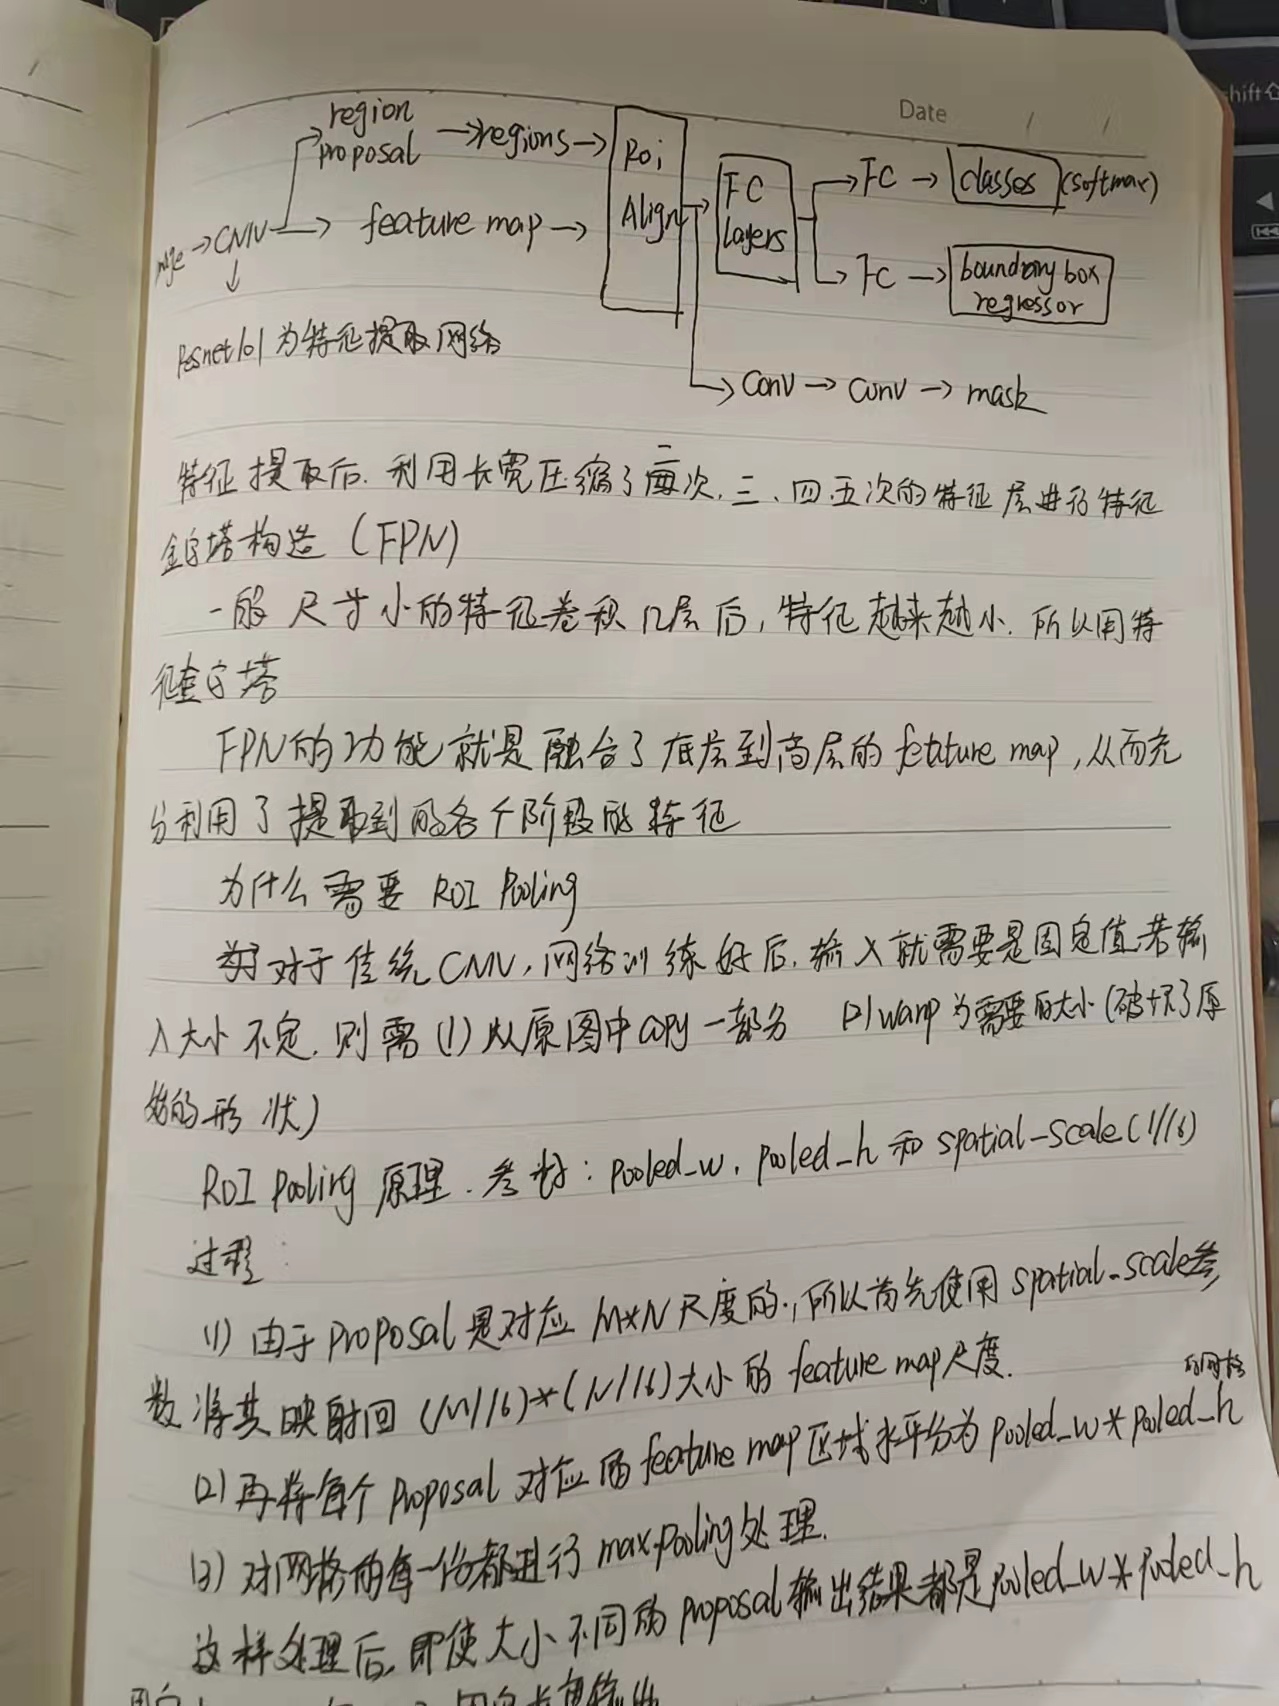 Date / /
region
proposal → regions → Roi
Align
→ CNN → feature map →
FC
Layers
→ FC → classes (softmax)
→ FC → boundary box
regressor
→ Conv → Conv → mask
Resnet101为特征提取网络
特征提取后.利用长宽压缩了二次,三、四.五次的特征层进行特征
金字塔构造 (FPN)
一般尺寸小的特征卷积几层后,特征越来越小.所以用特
征金字塔
FPN的功能就是融合了底层到高层的feature map,从而充
分利用了提取到的各个阶段的特征
为什么需要 ROI Pooling
对于传统CNN,网络训练好后.输入就需要是固定值.若输
入大小不定.则需(1)从原图中copy一部分 (2)warp为需要的大小(破坏了原
始的形状)
ROI Pooling 原理.参数: pooled_w, pooled_h 和 spatial-scale(1/16)
过程:
(1) 由于 proposal是对应 M*N尺度的,所以首先使用spatial_scale参
数将其映射回 (M/16)*(N/16)大小的 feature map尺度.
(2)再将每个 proposal 对应的feature map区域水平分为pooled_w*pooled_h
的网格
(3)对网格的每一份都进行max-pooling处理.
这样处理后,即使大小不同的proposal输出结果都是pooled_w*pooled_h